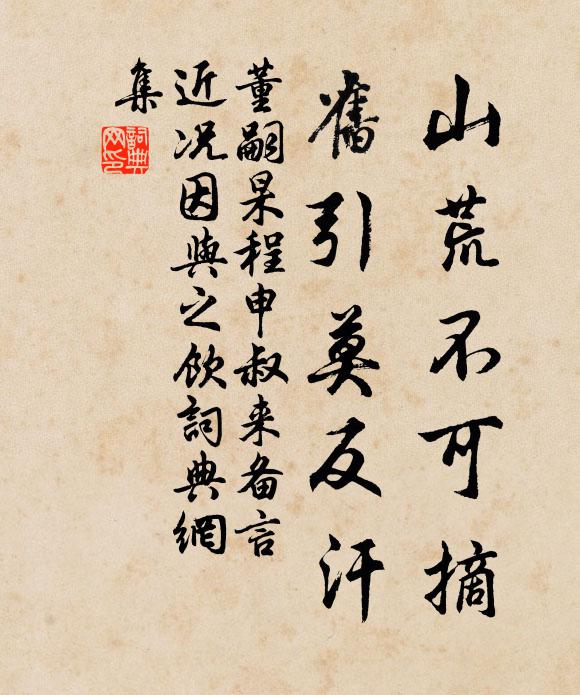 山荒不可摘
旧引莫反汗
董嗣杲程申叔来备言
近况因与之饮詞典網
集
詞典
网印